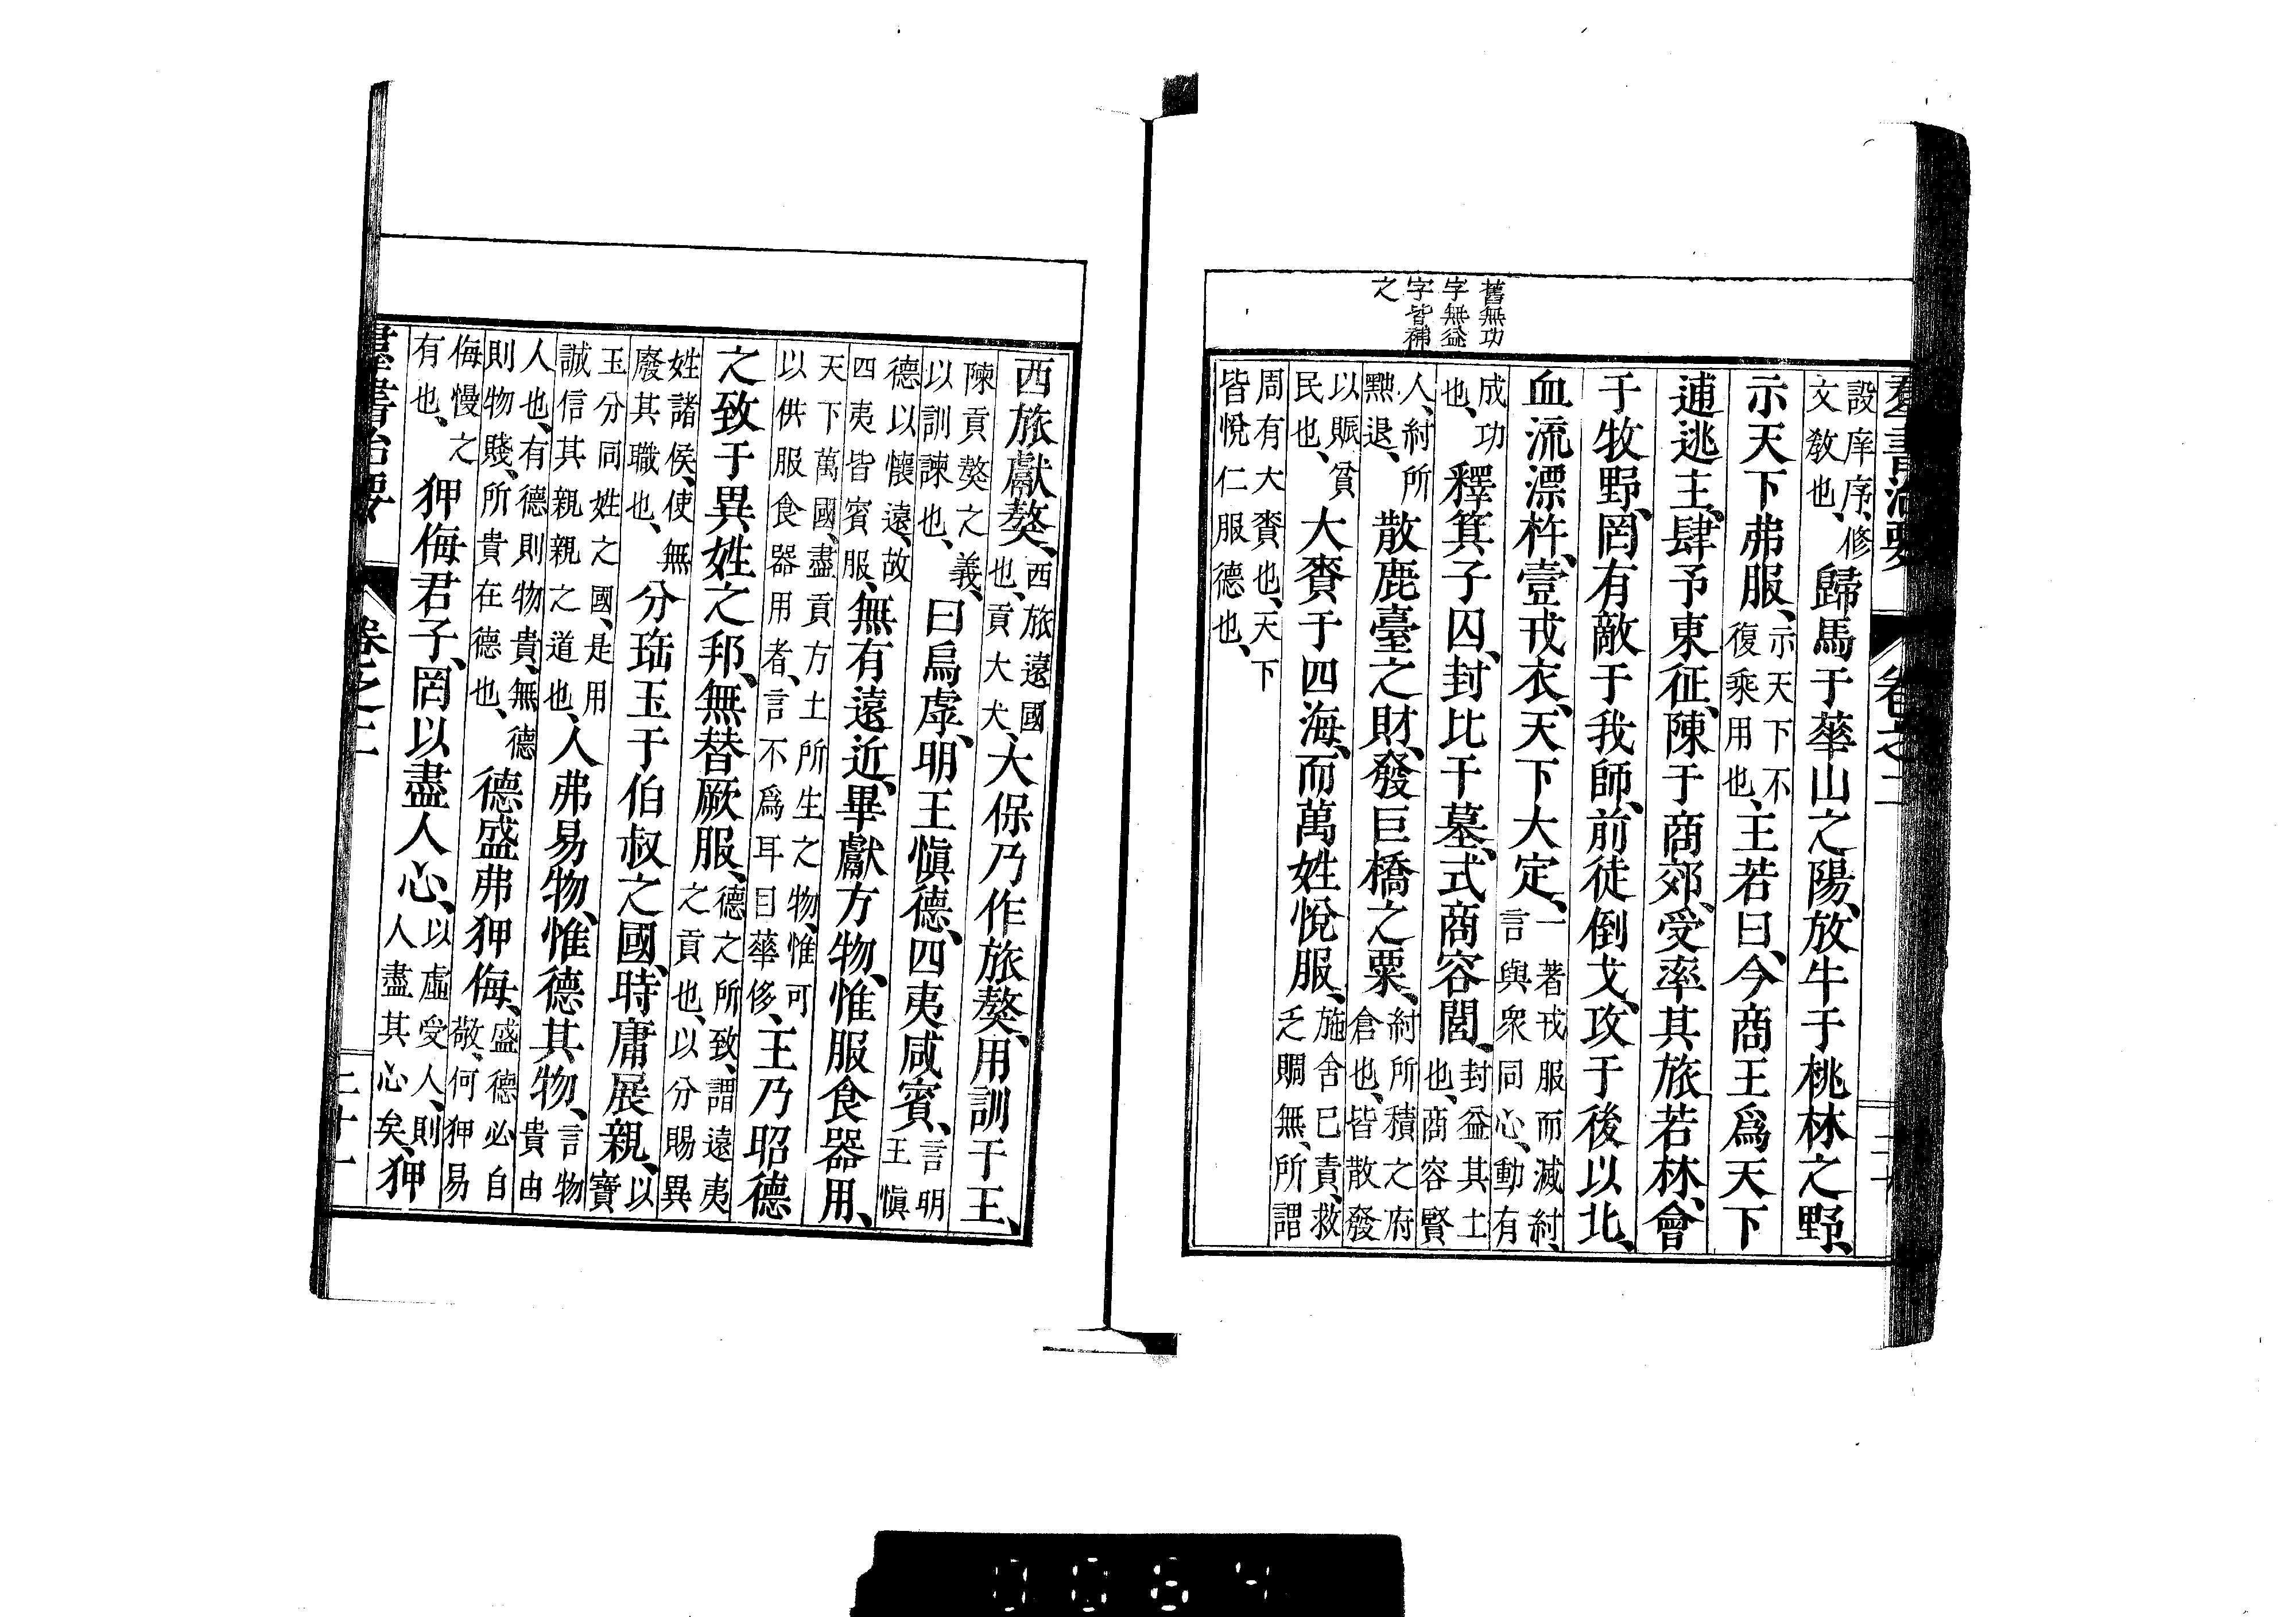 舊無功
字無益
字皆補
之
羣書治要 卷之二
設庠序、修文敎也、歸馬于華山之陽、放牛于桃林之野、
示天下弗服、示天下不復乘用也、王若曰、今商王爲天下
逋逃主、肆予東征、陳于商郊、受率其旅若林、會
于牧野、罔有敵于我師、前徒倒戈、攻于後以北、
血流漂杵、壹戎衣、天下大定、一著戎服而滅紂、言與衆同心、動有
成功也、釋箕子囚、封比干墓、式商容閭、封益其土也、商容賢
人、紂所黜退、散鹿臺之財、發巨橋之粟、紂所積之府倉也、皆散發
以賑貧民也、大賚于四海、而萬姓悅服、施舍已責、救乏賙無、所謂
周有大賚也、天下皆悅仁服德也、
西旅獻獒、西旅遠國也、貢大犬、大保乃作旅獒、用訓于王、
陳貢獒之義、以訓諫也、曰烏虖、明王愼德、四夷咸賓、言明王愼
德以懷遠、故四夷皆賓服、無有遠近、畢獻方物、惟服食器用、
天下萬國、盡貢方土所生之物、惟可以供服食器用者、言不爲耳目華侈、王乃昭德
之致于異姓之邦、無替厥服、德之所致、謂遠夷之貢也、以分賜異
姓諸侯、使無廢其職也、分珤玉于伯叔之國、時庸展親、以寶
玉分同姓之國、是用誠信其親親之道也、人弗易物、惟德其物、言物貴由
人也、有德則物貴、無德則物賤、所貴在德也、德盛弗狎侮、盛德必自敬、何狎易
侮慢之有也、狎侮君子、罔以盡人心、以虛受人、則人盡其心矣、狎
羣書治要 卷之二 三十一